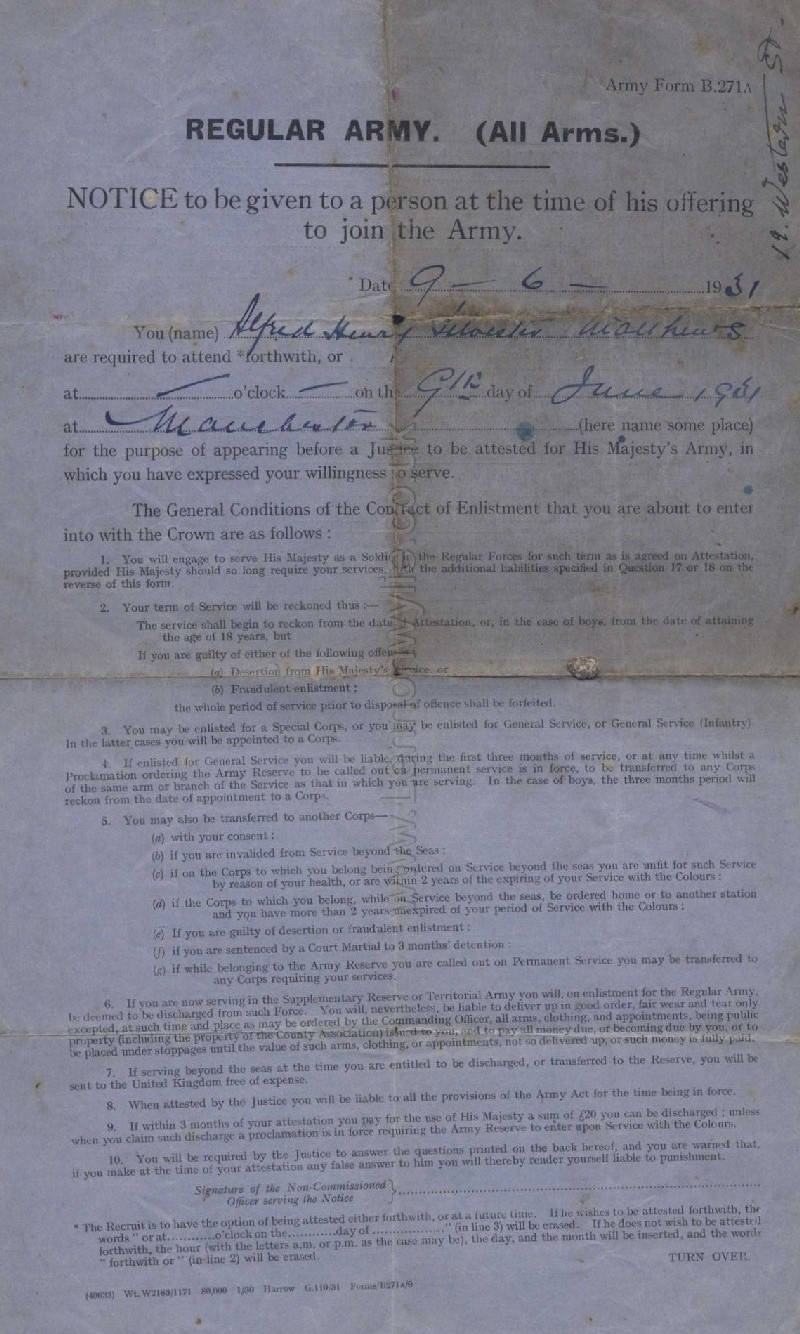 Army Form B.271A
REGULAR ARMY. (All Arms.)
NOTICE to be given to a person at the time of his offering
to join the Army.
Date 9 - 6 - 1931
You (name) Alfred Henry Silvester Matthews
are required to attend *forthwith, or
at o'clock on the 9th day of June 1931
at Manchester (here name some place)
for the purpose of appearing before a Justice to be attested for His Majesty's Army, in
which you have expressed your willingness to serve.
The General Conditions of the Contract of Enlistment that you are about to enter
into with the Crown are as follows :
1. You will engage to serve His Majesty as a Soldier in the Regular Forces for such term as is agreed on Attestation,
provided His Majesty should so long require your services, the additional liabilities specified in Question 17 or 18 on the
reverse of this form.
2. Your term of Service will be reckoned thus :—
The service shall begin to reckon from the date of Attestation, or, in the case of boys, from the date of attaining
the age of 18 years, but
If you are guilty of either of the following offences,
(a) Desertion from His Majesty's Service, or
(b) Fraudulent enlistment ;
the whole period of service prior to disposal of offence shall be forfeited.
3. You may be enlisted for a Special Corps, or you may be enlisted for General Service, or General Service (Infantry)
In the latter cases you will be appointed to a Corps.
4. If enlisted for General Service you will be liable, during the first three months of service, or at any time whilst a
Proclamation ordering the Army Reserve to be called out on permanent service is in force, to be transferred to any Corps
of the same arm or branch of the Service as that in which you are serving. In the case of boys, the three months period will
reckon from the date of appointment to a Corps.
5. You may also be transferred to another Corps—
(a) with your consent :
(b) if you are invalided from Service beyond the Seas :
(c) if on the Corps to which you belong being ordered on Service beyond the seas you are unfit for such Service
by reason of your health, or are within 2 years of the expiring of your Service with the Colours :
(d) if the Corps to which you belong, while on Service beyond the seas, be ordered home or to another station
and you have more than 2 years unexpired of your period of Service with the Colours :
(e) If you are guilty of desertion or fraudulent enlistment :
(f) if you are sentenced by a Court Martial to 3 months' detention :
(g) if while belonging to the Army Reserve you are called out on Permanent Service you may be transferred to
any Corps requiring your services.
6. If you are now serving in the Supplementary Reserve or Territorial Army you will, on enlistment for the Regular Army,
be deemed to be discharged from such Force. You will, nevertheless, be liable to deliver up in good order, fair wear and tear only
excepted, at such time and place as may be ordered by the Commanding Officer, all arms, clothing, and appointments, being public
property (including the property of the County Association) issued to you, and to pay all money due, or becoming due by you, or to
be placed under stoppages until the value of such arms, clothing, or appointments, not so delivered up, or such money is fully paid.
7. If serving beyond the seas at the time you are entitled to be discharged, or transferred to the Reserve, you will be
sent to the United Kingdom free of expense.
8. When attested by the Justice you will be liable to all the provisions of the Army Act for the time being in force.
9. If within 3 months of your attestation you pay for the use of His Majesty a sum of £20 you can be discharged ; unless
when you claim such discharge a proclamation is in force requiring the Army Reserve to enter upon Service with the Colours.
10. You will be required by the Justice to answer the questions printed on the back hereof, and you are warned that,
if you make at the time of your attestation any false answer to him you will thereby render yourself liable to punishment.
Signature of the Non-Commissioned
Officer serving the Notice
* The Recruit is to have the option of being attested either forthwith, or at a future time. If he wishes to be attested forthwith, the
words " or at............o'clock on the............day of..................." (in line 3) will be erased. If he does not wish to be attested
forthwith, the hour (with the letters a.m. or p.m. as the case may be), the day, and the month will be inserted, and the words
" forthwith or " (in line 2) will be erased.
TURN OVER.
(40633) Wt. W2163/1171 80,000 1/30 Harrow G.110/31 Forms/B271A/9
12. Western St.